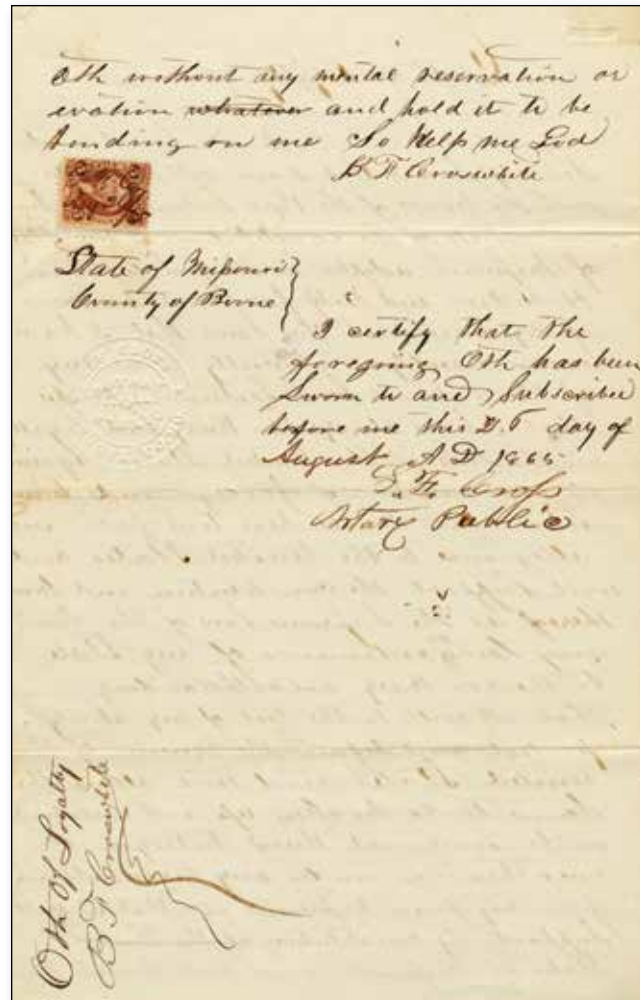 Oth without any mental reservation or
evation whatever and hold it to be
binding on me So Help me God
B F Croswhite
State of Missouri
County of Boone
I certify that the
foregoing Oth has been
Sworn to and Subscribed
before me this day of
August A D 1865
Cross
Notary Public
Oth Of Loyalty
B F Croswhite